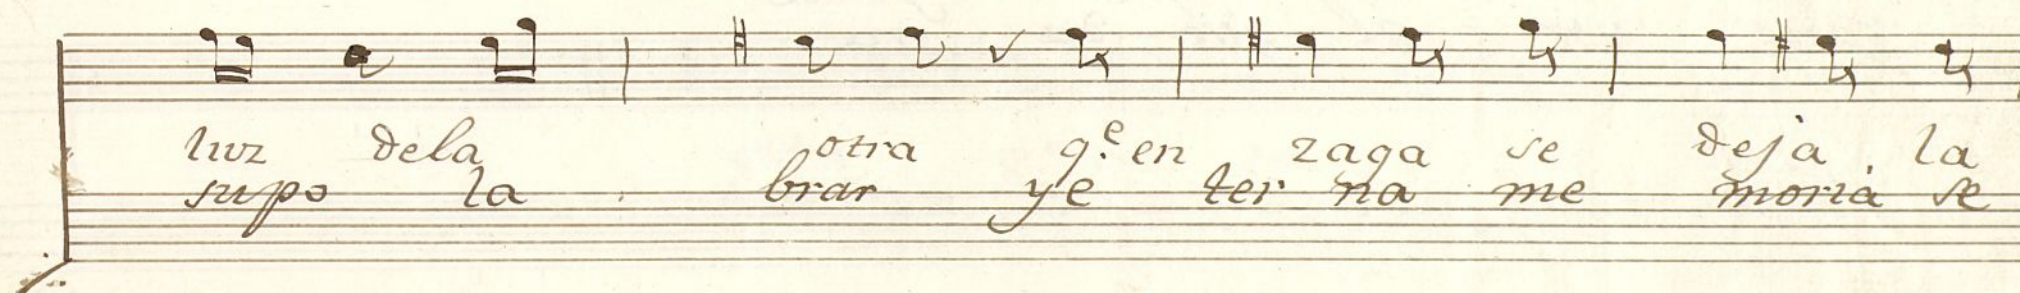 luz dela otra q.e en zaga se deja la
supo la brar y e ter na me moria se